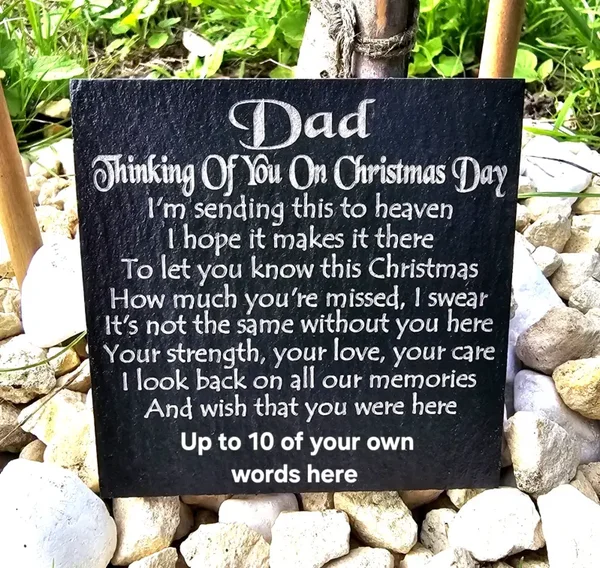 Dad
Thinking Of You On Christmas Day
I'm sending this to heaven
I hope it makes it there
To let you know this Christmas
How much you're missed, I swear
It's not the same without you here
Your strength, your love, your care
I look back on all our memories
And wish that you were here
Up to 10 of your own
words here